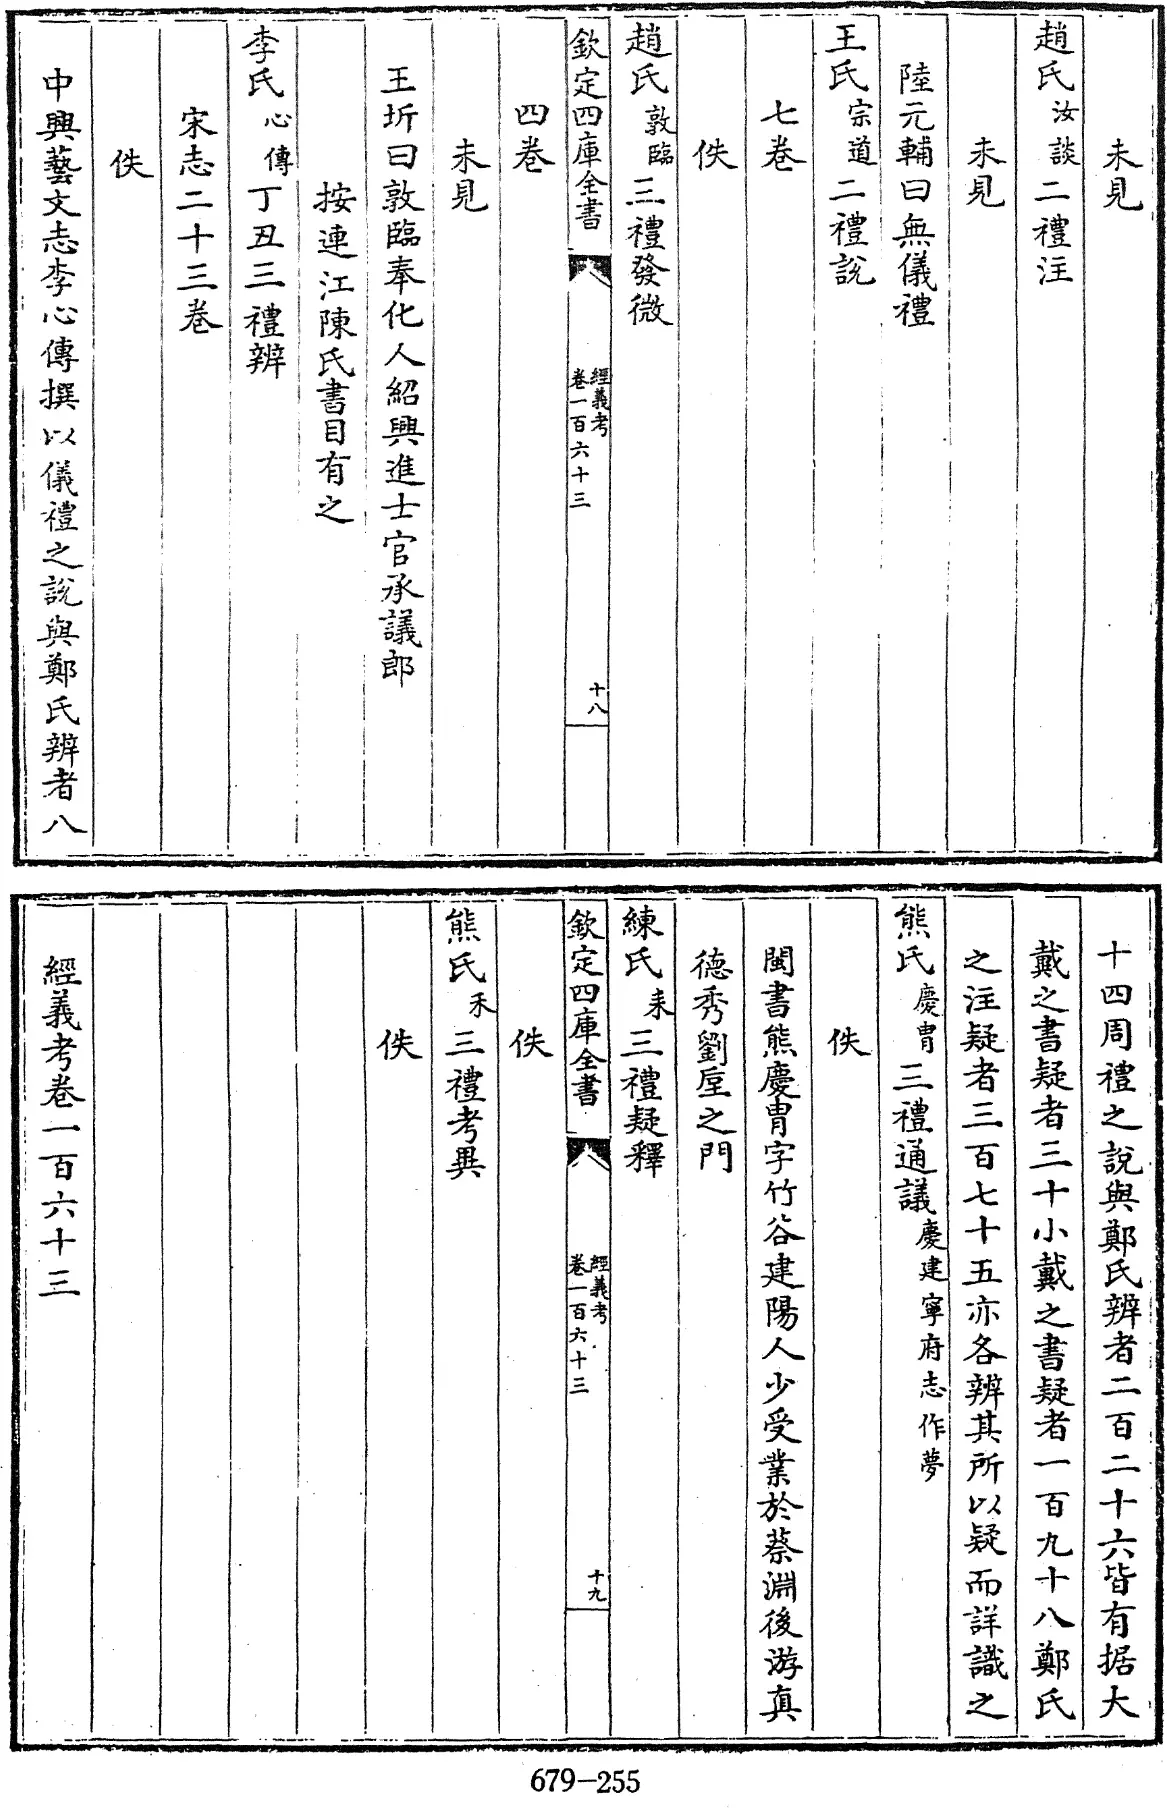 未見
趙氏汝談二禮注
未見
陸元輔曰無儀禮
王氏宗道二禮說
七卷
佚
趙氏敦臨三禮發微
欽定四庫全書
經義考
卷一百六十三
十八
四卷
未見
王圻曰敦臨奉化人紹興進士官承議郎
按連江陳氏書目有之
李氏心傳丁丑三禮辨
宋志二十三卷
佚
中興藝文志李心傳撰以儀禮之說與鄭氏辨者八
十四周禮之說與鄭氏辨者二百二十六皆有据大
戴之書疑者三十小戴之書疑者一百九十八鄭氏
之注疑者三百七十五亦各辨其所以疑而詳識之
熊氏慶胄三禮通議慶建寧府志作夢
佚
閩書熊慶胄字竹谷建陽人少受業於蔡淵後游真
德秀劉垕之門
練氏耒三禮疑釋
欽定四庫全書
經義考
卷一百六十三
十九
佚
熊氏禾三禮考異
佚
經義考卷一百六十三
679-255